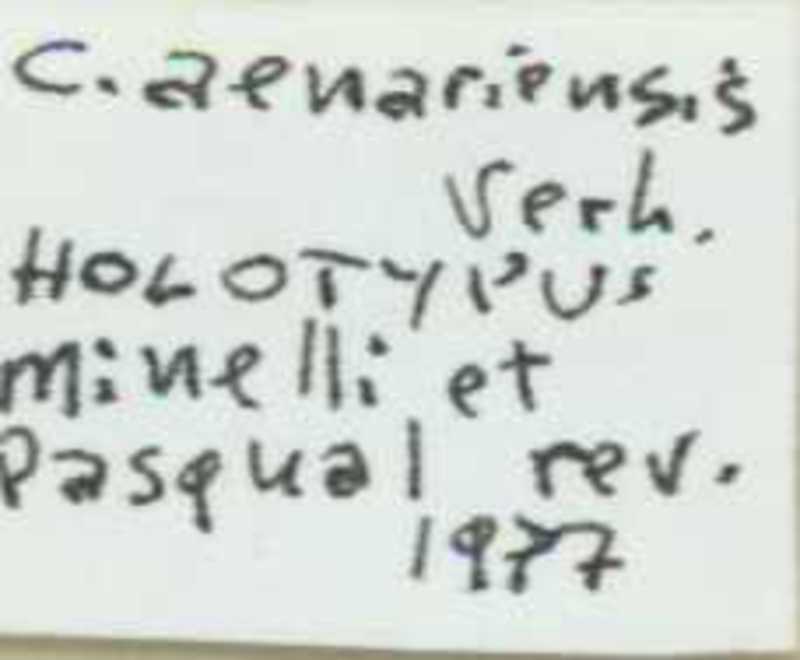 C. aenariensis
Verh.
HOLOTYPUS
Minelli et
Pasqual rev.
1977